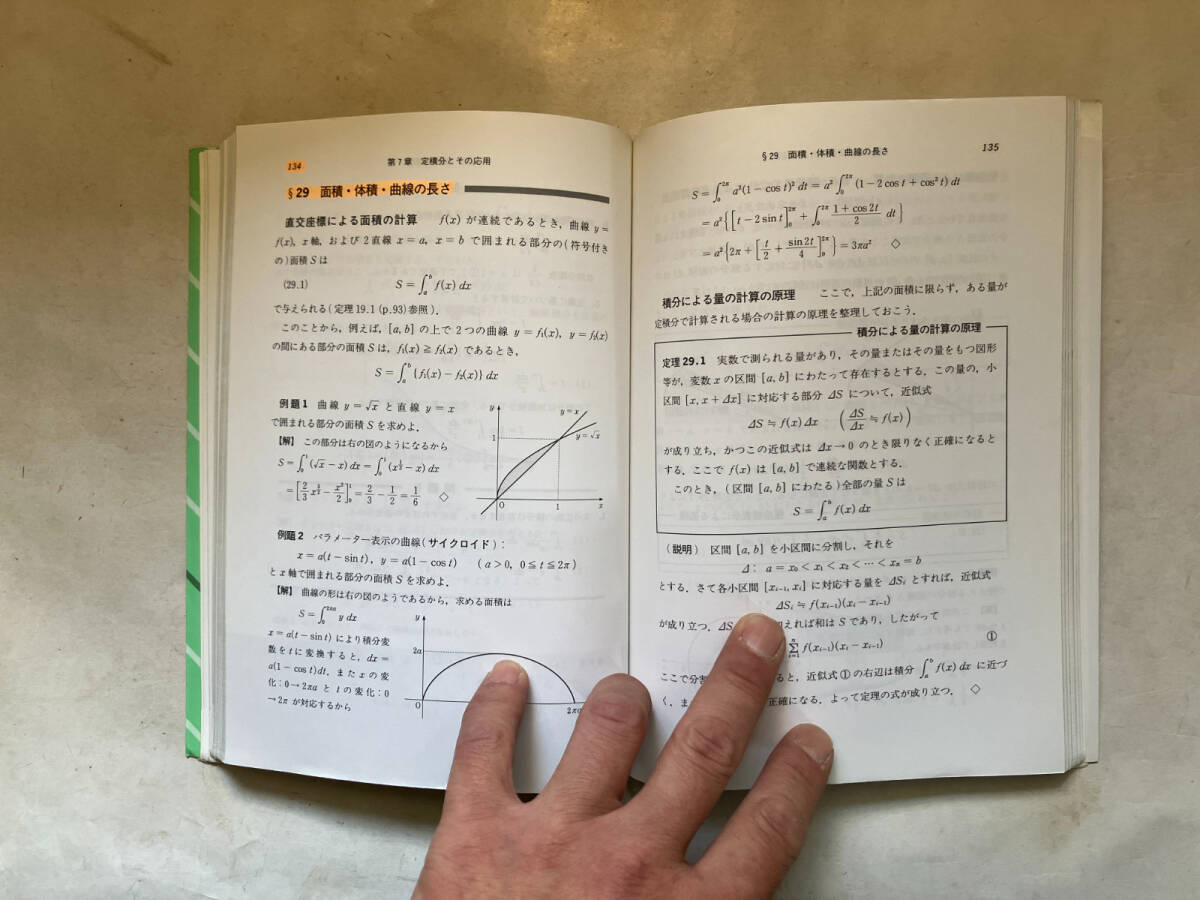 134
第7章 定積分とその応用
§29 面積・体積・曲線の長さ
直交座標による面積の計算 f(x) が連続であるとき,曲線 y=
f(x), x軸, および2直線 x=a, x=b で囲まれる部分の(符号付き
の)面積Sは
(29.1) S=∫_a^b f(x) dx
で与えられる(定理19.1 (p.93)参照).
このことから,例えば,[a, b] の上で2つの曲線 y=f₁(x), y=f₂(x)
の間にある部分の面積Sは, f₁(x)≧f₂(x) であるとき,
S=∫_a^b {f₁(x)−f₂(x)} dx
例題1 曲線 y=√x と直線 y=x
で囲まれる部分の面積Sを求めよ.
【解】 この部分は右の図のようになるから
S=∫_0^1 (√x−x) dx=∫_0^1 (x^{1/2}−x) dx
=[2/3 x^{3/2}−x²/2]_0^1=2/3−1/2=1/6 ◇
y
y=x
y=√x
1
O
1
x
例題2 パラメーター表示の曲線(サイクロイド):
x=a(t−sin t), y=a(1−cos t) (a>0, 0≦t≦2π)
とx軸で囲まれる部分の面積Sを求めよ.
【解】 曲線の形は右の図のようであるから,求める面積は
S=∫_0^{2πa} y dx
x=a(t−sin t) により積分変
数をtに変換すると, dx=
a(1−cos t)dt, また x の変
化:0→2πa と t の変化:0
→2π が対応するから
y
2a
O
2πa
§29 面積・体積・曲線の長さ
135
S=∫_0^{2π} a²(1−cos t)² dt=a²∫_0^{2π} (1−2cos t+cos² t) dt
=a²{[t−2sin t]_0^{2π}+∫_0^{2π} (1+cos 2t)/2 dt}
=a²{2π+[t/2+sin 2t/4]_0^{2π}}=3πa² ◇
積分による量の計算の原理 ここで,上記の面積に限らず,ある量が
定積分で計算される場合の計算の原理を整理しておこう.
積分による量の計算の原理
定理29.1 実数で測られる量があり,その量またはその量をもつ図形
等が,変数 x の区間 [a, b] にわたって存在するとする.この量の,小
区間 [x, x+Δx] に対応する部分 ΔS について,近似式
ΔS≒f(x)Δx : (ΔS/Δx≒f(x))
が成り立ち,かつこの近似式は Δx→0 のとき限りなく正確になると
する.ここで f(x) は [a, b] で連続な関数とする.
このとき,(区間 [a, b] にわたる)全部の量Sは
S=∫_a^b f(x) dx
(説明) 区間 [a, b] を小区間に分割し,それを
Δ: a=x₀<x₁<x₂<⋯<xₙ=b
とする.さて各小区間 [xᵢ₋₁, xᵢ] に対応する量を ΔSᵢ とすれば,近似式
ΔSᵢ≒f(xᵢ₋₁)(xᵢ−xᵢ₋₁)
が成り立つ. ΔS 加えれば和はSであり,したがって
Σ_{i=1}^n f(xᵢ₋₁)(xᵢ−xᵢ₋₁) ①
ここで分割 ると,近似式①の右辺は積分 ∫_a^b f(x) dx に近づ
く.ま 正確になる.よって定理の式が成り立つ. ◇